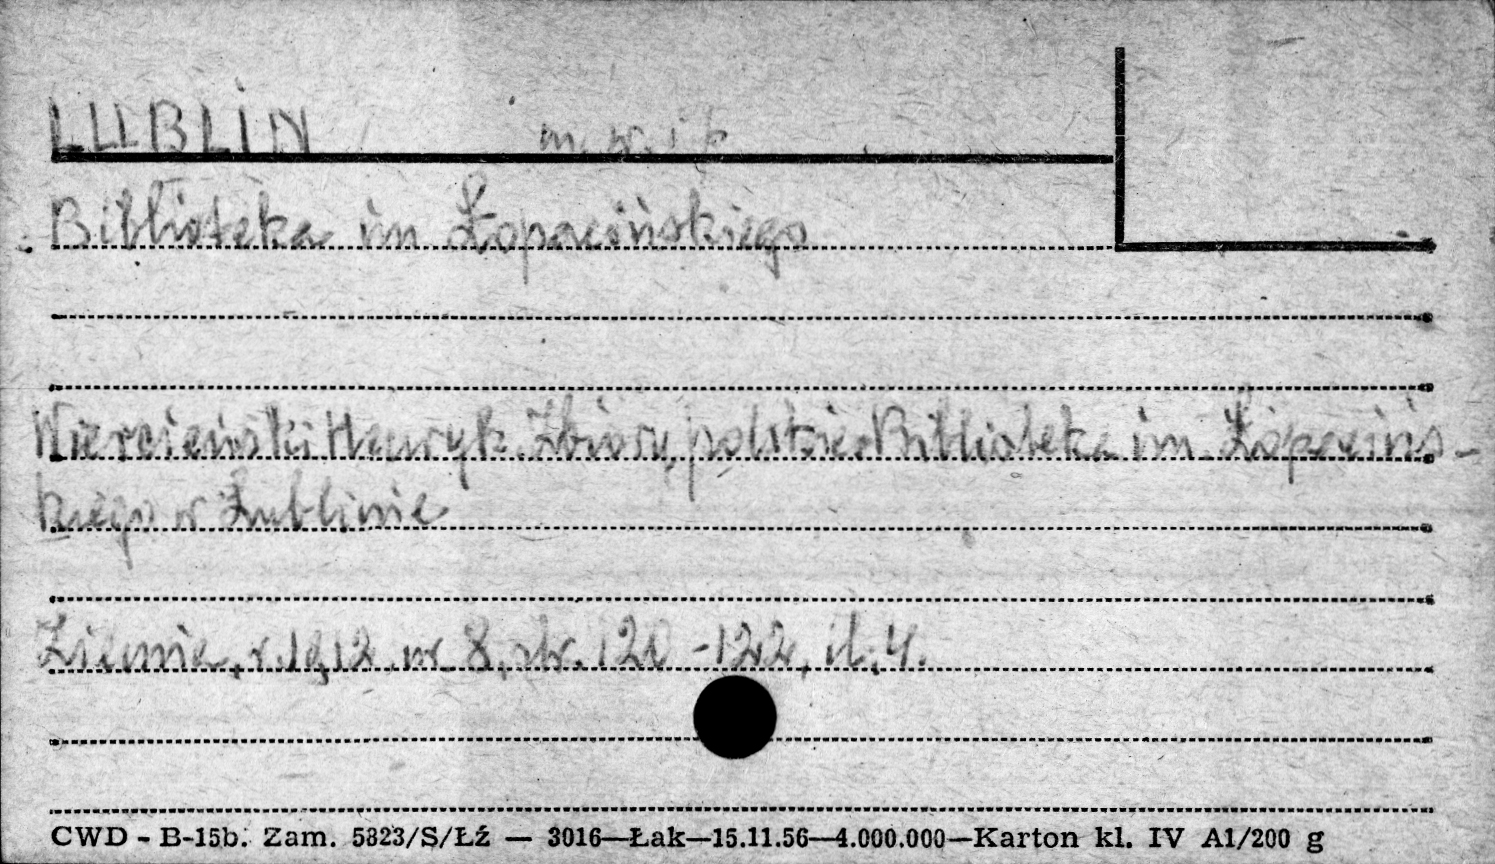 LUBLIN m. w. i p.
Biblioteka im Łopacińskiego
Wiercieński Henryk. Zbiory polskie. Biblioteka im. Łopacińs-
kiego w Lublinie
Ziemia, r. 1912 nr 8, str. 120-122, il. 4.
CWD - B-15b. Zam. 5823/S/Łź — 3016—Łak—15.11.56—4.000.000—Karton kl. IV A1/200 g